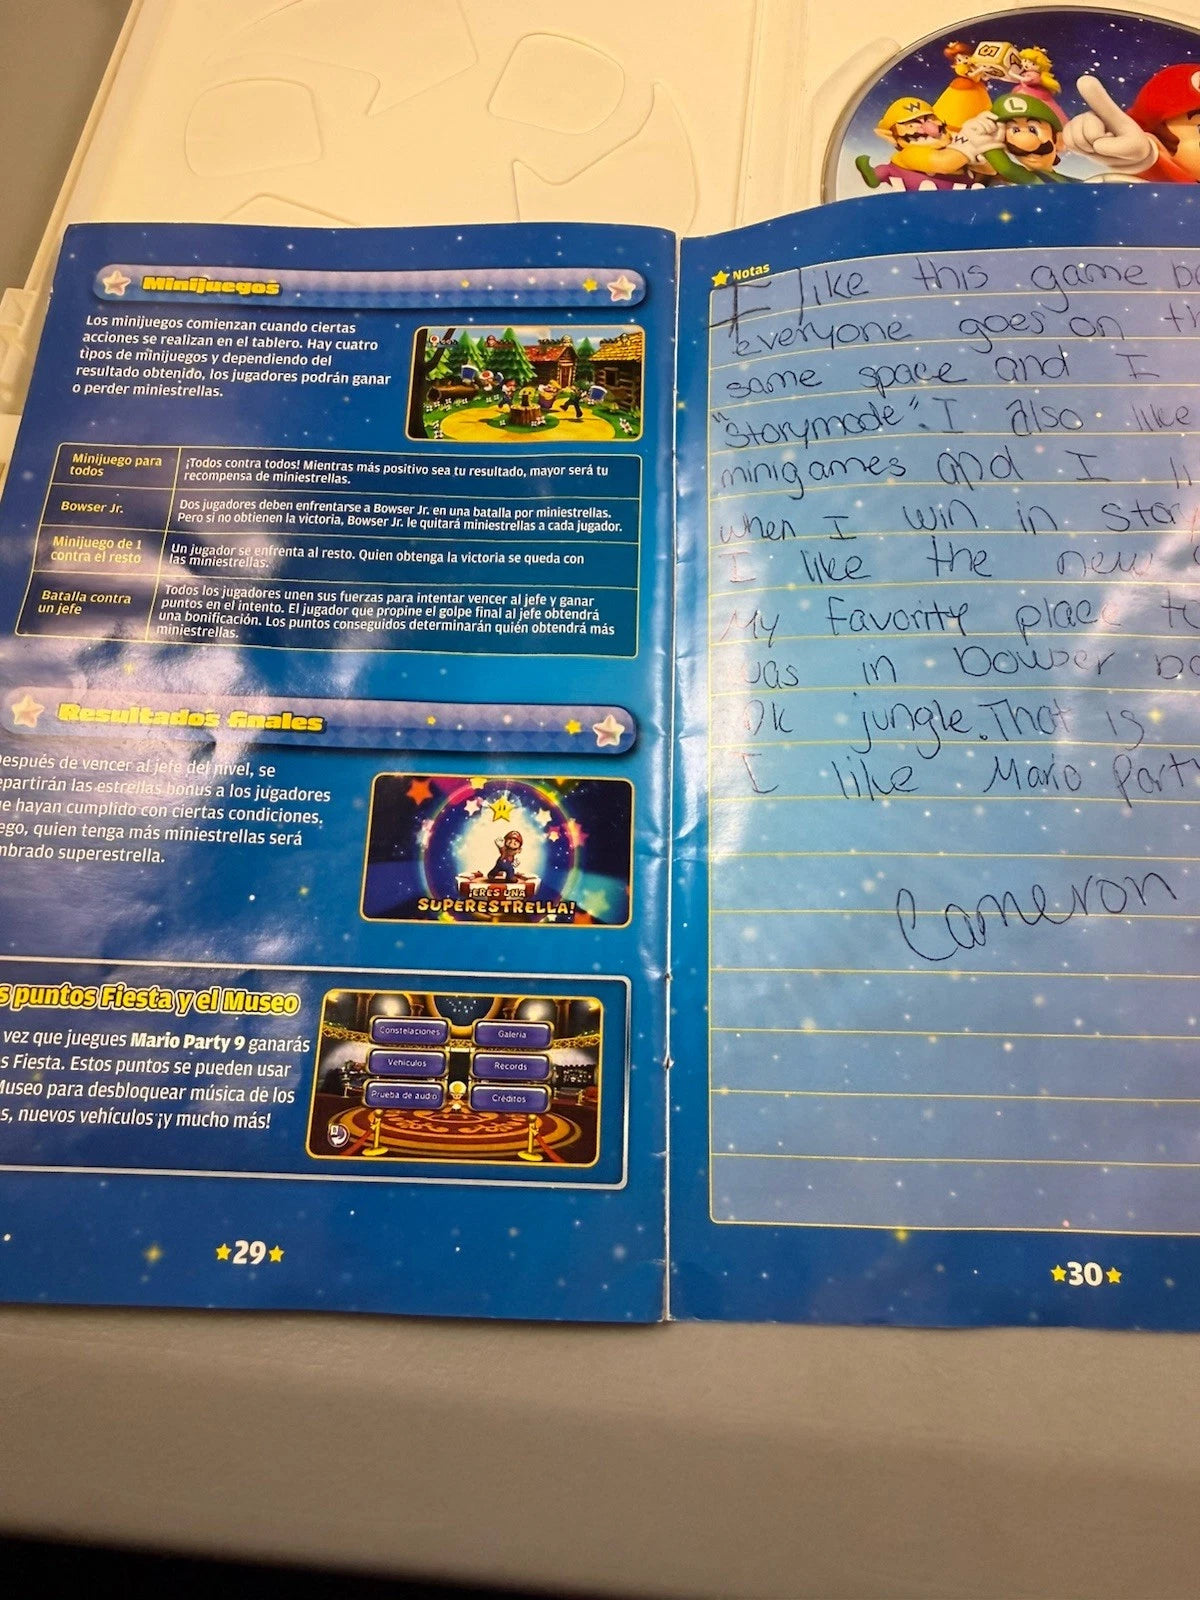 Minijuegos
Los minijuegos comienzan cuando ciertas
acciones se realizan en el tablero. Hay cuatro
tipos de minijuegos y dependiendo del
resultado obtenido, los jugadores podrán ganar
o perder miniestrellas.
Minijuego para
todos
¡Todos contra todos! Mientras más positivo sea tu resultado, mayor será tu
recompensa de miniestrellas.
Bowser Jr.
Dos jugadores deben enfrentarse a Bowser Jr. en una batalla por miniestrellas.
Pero si no obtienen la victoria, Bowser Jr. le quitará miniestrellas a cada jugador.
Minijuego de 1
contra el resto
Un jugador se enfrenta al resto. Quien obtenga la victoria se queda con
las miniestrellas.
Batalla contra
un jefe
Todos los jugadores unen sus fuerzas para intentar vencer al jefe y ganar
puntos en el intento. El jugador que propine el golpe final al jefe obtendrá
una bonificación. Los puntos conseguidos determinarán quién obtendrá más
miniestrellas.
Resultados finales
después de vencer al jefe del nivel, se
partirán las estrellas bonus a los jugadores
e hayan cumplido con ciertas condiciones.
ego, quien tenga más miniestrellas será
mbrado superestrella.
¡ERES UNA
SUPERESTRELLA!
s puntos Fiesta y el Museo
vez que juegues Mario Party 9 ganarás
s Fiesta. Estos puntos se pueden usar
Museo para desbloquear música de los
s, nuevos vehículos ¡y mucho más!
Constelaciones
Galería
Vehículos
Records
Prueba de audio
Créditos
29
Notas
I like this game
everyone goes on
same space and I
"Storymode". I also like
minigames and I
when I win in
I like the new
My favority place
was in bowser
DK jungle. That is
I like Mario Party
Cameron
30